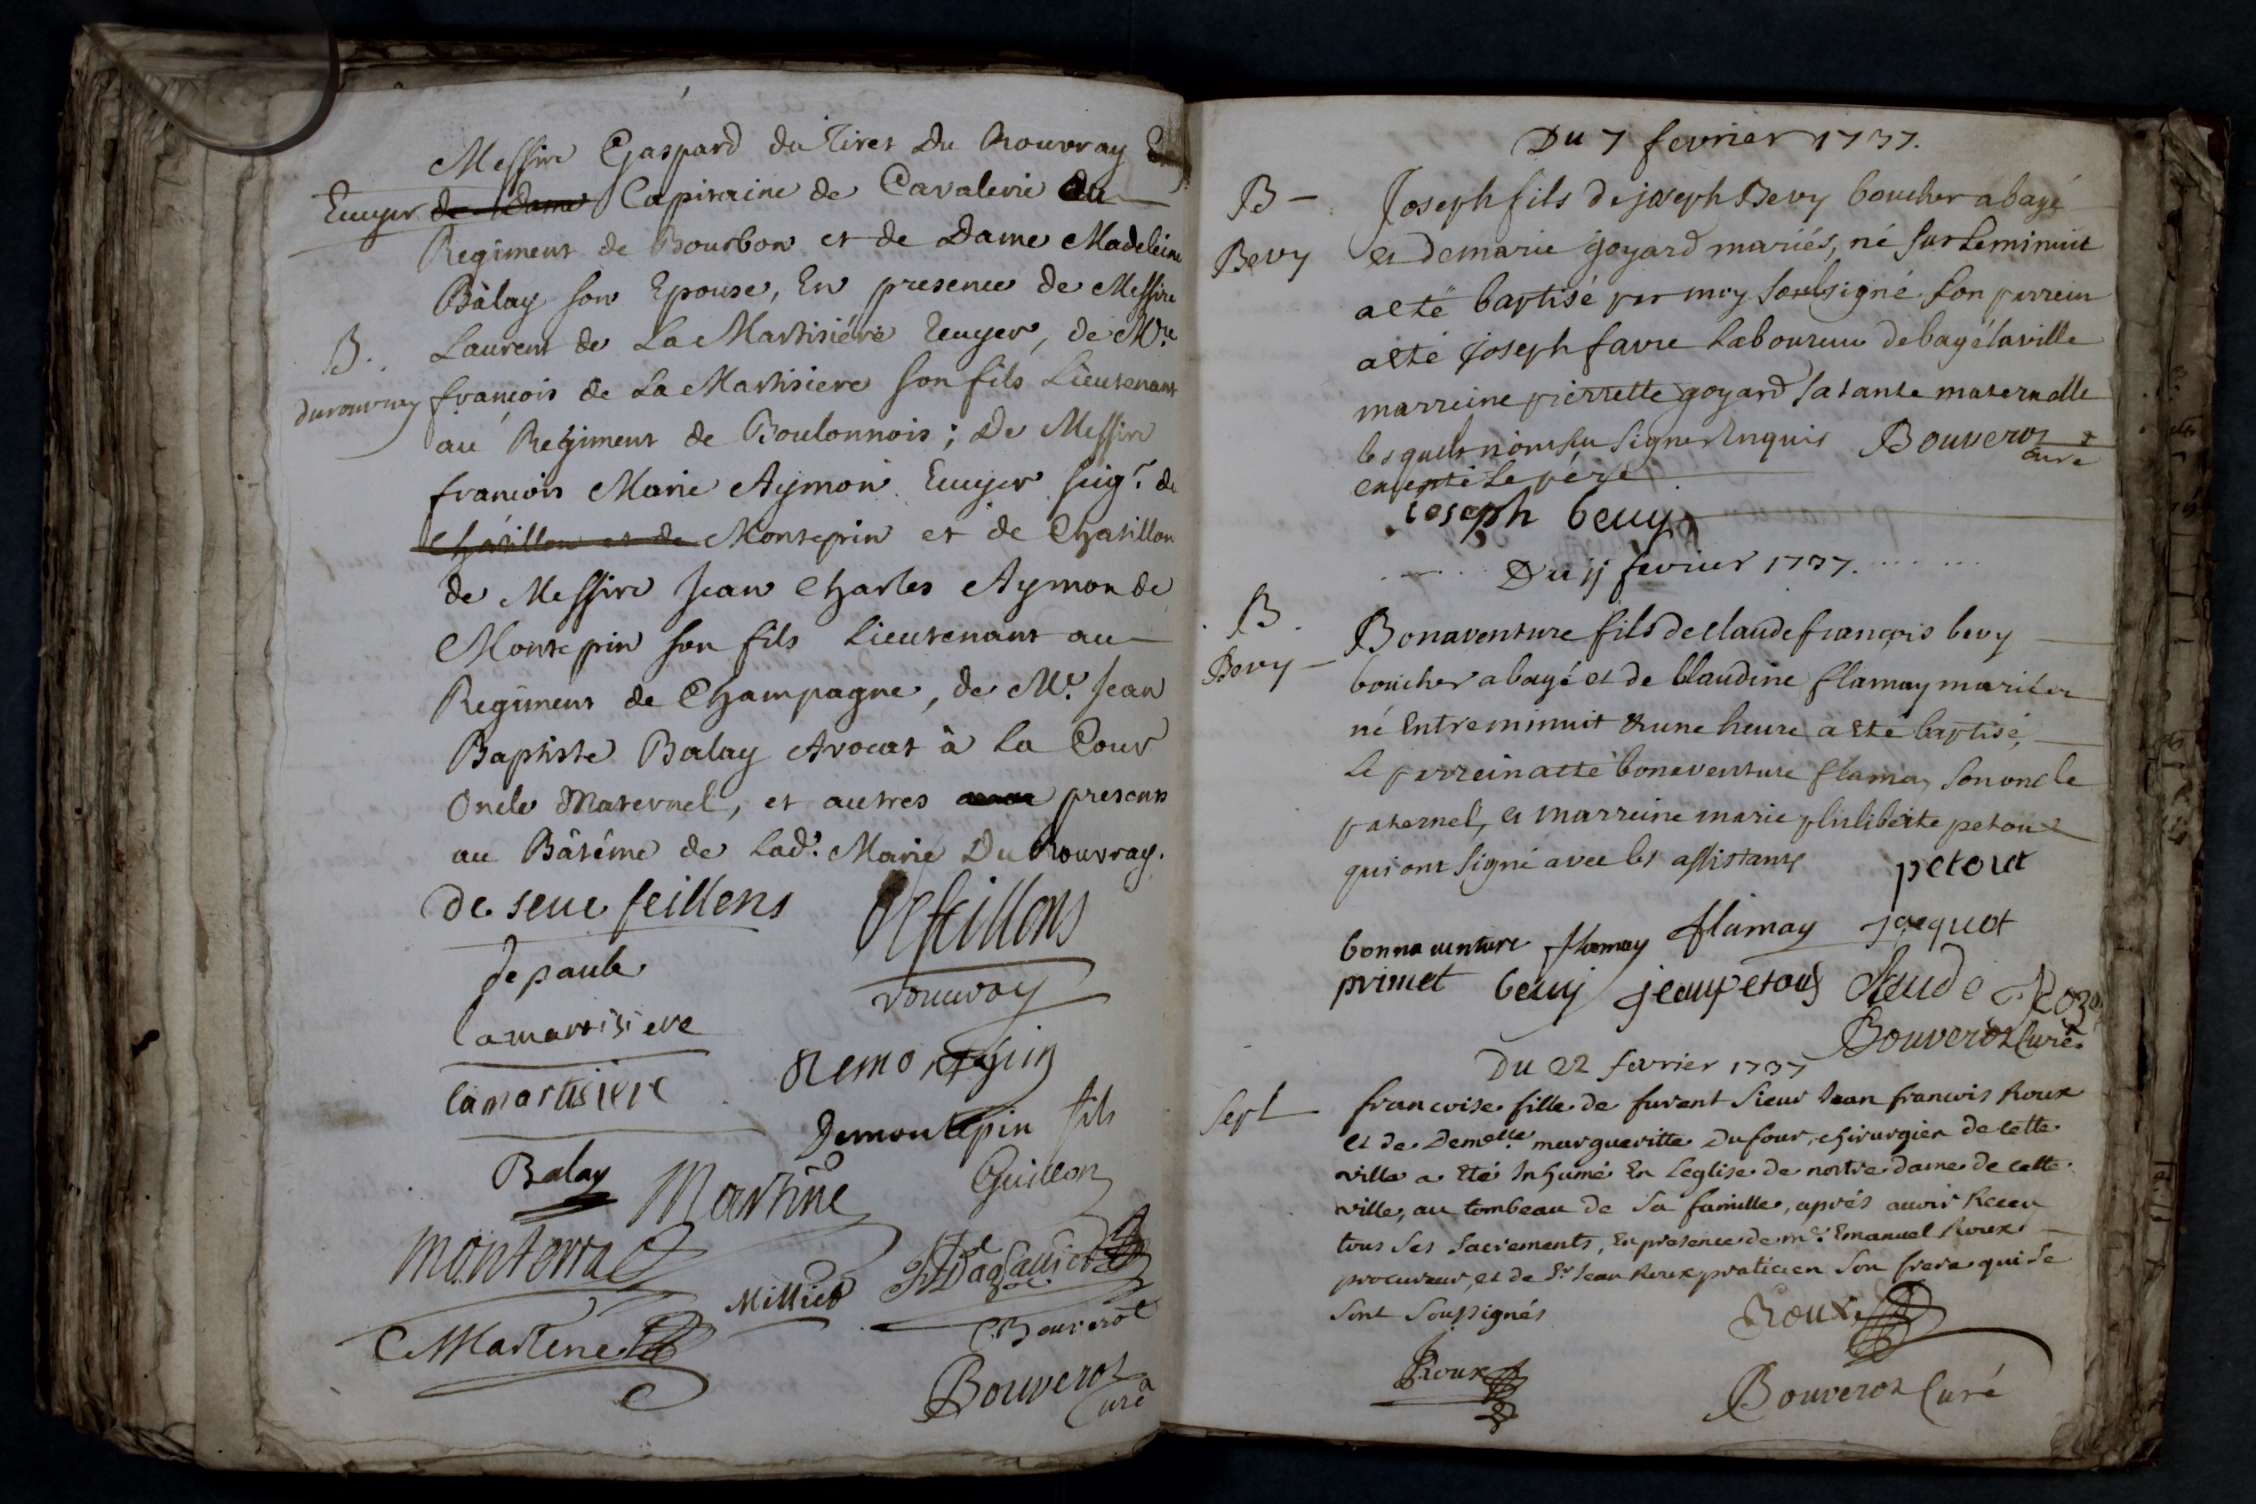 Messire Gaspard du Tiret Du Rouvray
Ecuyer de Dame Capitaine de Cavalerie au
Regiment de Bourbon et de Dame Madeleine
Bâlay son Epouse, En presence de Messire
B. Laurent de La Martisiére Ecuyer, de Mre
durouvray francois de La Martisiere son fils Lieutenant
au Regiment de Boulonnois; De Messire
francois Marie Aymon Ecuyer seigr. de
Châtillon et de Montepin et de Chatillon
de Messire Jean Charles Aymon de
Montepin son fils Lieutenant au
Regiment de Champagne, de Me. Jean
Baptiste Balay Avocat à La Cour
Oncle Maternel, et autres presens
au Bâtême de Lade. Marie Du Rouvray.
de seue feillens Defeillens
De paule rouuray
lamartisiere
lamartisiere Demontepin
Demontepin fils
Balay Martine Guillon
Monterrad
Millied
C Martene C. Bouverot
Bouverot
Curé
Du 7 fevrier 1737.
B – Joseph fils de joseph Bevy boucher a bagé
Bevy et de marie goyard mariés, né sur Le minuit
a eté baptisé par moy soubsigné son parrein
a eté joseph favre Laboureur de bagé la ville
marreine pierrette goyard sa tante maternelle
lesquels n'ont su signer Enquis Bouverot
curé
ioseph beuy
Du 11 fevrier 1737.
B. Bonaventure fils de claude françois bevy
Bevy – boucher a bagé et de Claudine flamay mariés
né Entre minuit & une heure a eté baptisé,
Le parrein a eté bonaventure flamay son oncle
paternel, et marreine marie philiberte petout
qui ont signé avec les assistants petout
bonna uenture flamay flamay jacquot
primet beuy jean petout Claude
Bouverot Curé
Du 22 fevrier 1737
Sept francoise fille de furent Sieur Jean francois Roux
et de Demelle margueritte Dufour, chirurgien de cette
ville a eté Inhumé En Leglise de nostre dame de cette
ville, au tombeau de sa famille, aprés auoir Receu
tous ses sacrements, En presence de me. Emanuel Roux
procureur, et de Sr Jean Roux praticien son frere qui se
sont soussignés Roux
Roux Bouverot Curé